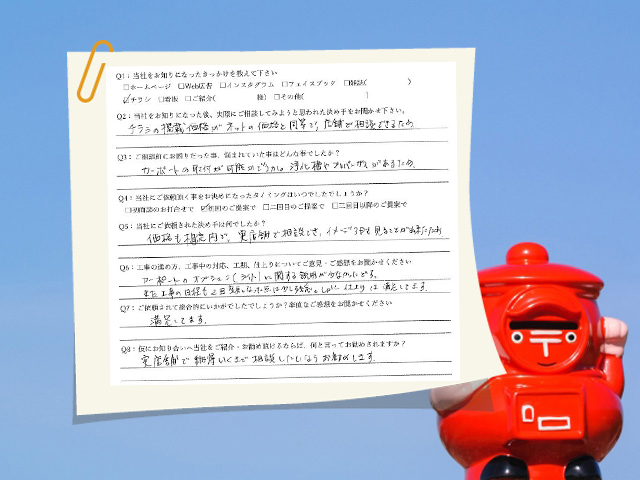 Q1：当社をお知りになったきっかけを教えて下さい
□ホームページ □Web広告 □インスタグラム □フェイスブック □雑誌( )
☑チラシ □看板 □ご紹介( 様) □その他( )
Q2：当社をお知りになった後、実際にご相談してみようと思われた決め手をお聞かせ下さい。
チラシの掲載価格がネットの価格と同等で、店舗で相談できるため
Q3：ご相談前にお困りだった事、悩まれていた事はどんな事でしたか？
カーポートの取付が可能かどうか。浄化槽や
があるため。
Q4：当社にご依頼頂く事をお決めになったタイミングはいつでしたでしょうか？
□初面談のお打合せで ☑初回のご提案で □二回目のご提案で □二回目以降のご提案で
Q5：当社にご依頼された決め手は何でしたか？
価格も想定内で、実店舗で相談でき、イメージ図も見ることが出来たため
Q6：工事の進め方、工事中の対応、工期、仕上りについてご意見・ご感想をお聞かせください
カーポートのオプション(ライト)に関する説明が少なかったです。
また工事の日程も
仕上りは満足してます。
Q7：ご依頼されて総合的にいかがでしたでしょうか？率直なご感想をお聞かせください
満足してます。
Q8：仮にお知り合いへ当社をご紹介・お勧め頂けるならば、何と言ってお勧めされますか？
実店舗で納得いくまで相談したいならお勧めします。